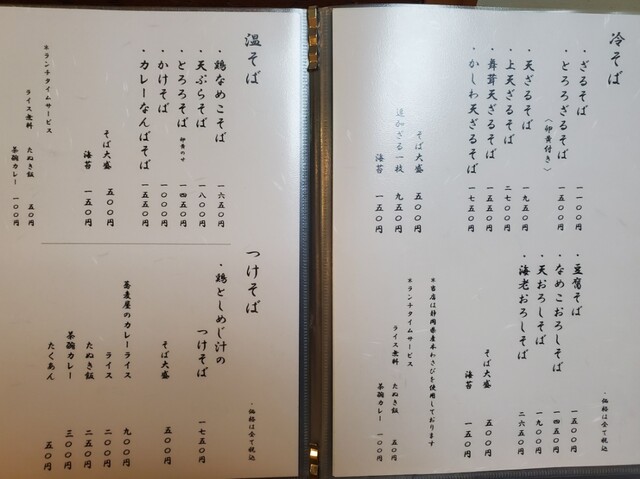 冷そば
・ざるそば 一一〇〇円
・とろろざるそば 一五〇〇円
〈卵黄付き〉
・天ざるそば 一九五〇円
・上天ざるそば 二七〇〇円
・舞茸天ざるそば 一五五〇円
・かしわ天ざるそば 一七五〇円
そば大盛 五〇〇円
追加ざる一枚 九五〇円
海苔 一五〇円
・豆腐そば 一五〇〇円
・なめこおろしそば 一四五〇円
・天おろしそば 一九〇〇円
・海老おろしそば 二六五〇円
そば大盛 五〇〇円
海苔 一五〇円
・価格は全て税込
＊当店は静岡県産本わさびを使用しております
＊ランチタイムサービス
ライス無料
たぬき飯 五〇円
茶碗カレー 一〇〇円
温そば
・鶏なめこそば 一六五〇円
・天ぷらそば 一八〇〇円
・とろろそば 卵黄のせ 一四五〇円
・かけそば 一〇〇〇円
・カレーなんばそば 一五五〇円
そば大盛 五〇〇円
海苔 一五〇円
＊ランチタイムサービス
ライス無料
たぬき飯 五〇円
茶碗カレー 一〇〇円
つけそば
・鶏としめじ汁の
つけそば 一七五〇円
そば大盛 五〇〇円
蕎麦屋のカレーライス 九〇〇円
ライス 二〇〇円
たぬき飯 二五〇円
茶碗カレー 三〇〇円
たくあん 五〇円
・価格は全て税込